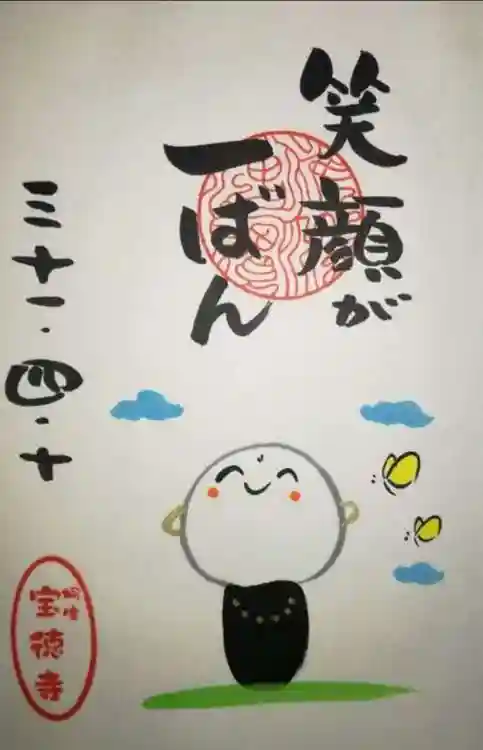 笑顔が
一ばん
三十一・四・十
桐生
宝徳寺